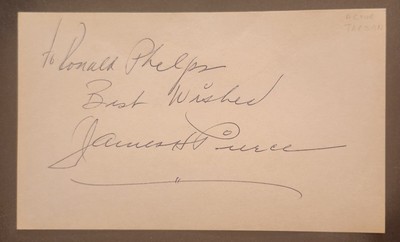 To Ronald Phelps
Best Wished
James H Pierce
TARZAN